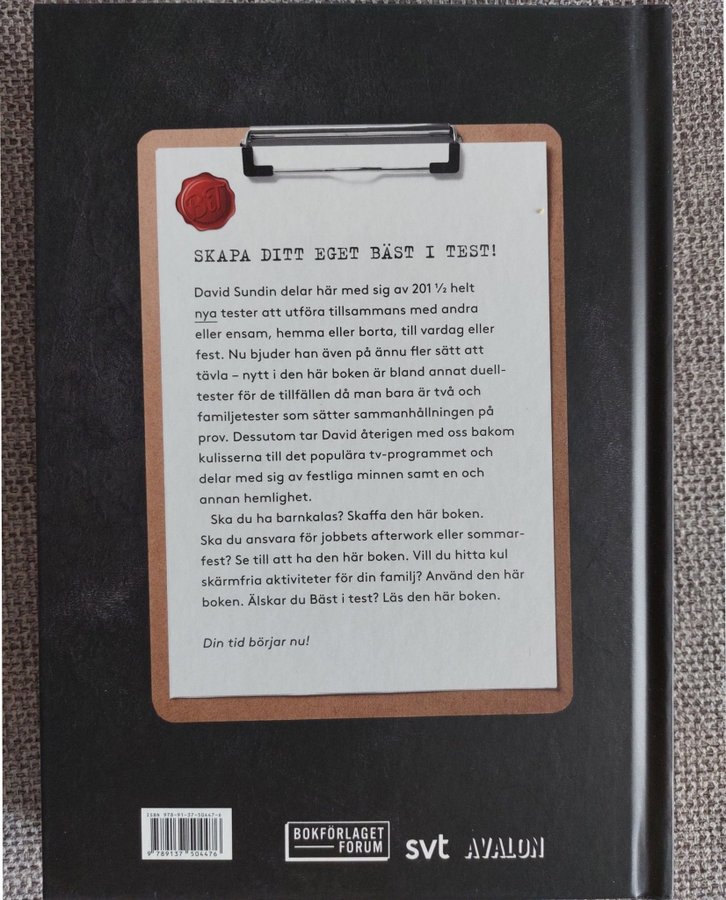 BiT
SKAPA DITT EGET BÄST I TEST!
David Sundin delar här med sig av 201 ½ helt
nya tester att utföra tillsammans med andra
eller ensam, hemma eller borta, till vardag eller
fest. Nu bjuder han även på ännu fler sätt att
tävla – nytt i den här boken är bland annat duell-
tester för de tillfällen då man bara är två och
familjetester som sätter sammanhållningen på
prov. Dessutom tar David återigen med oss bakom
kulisserna till det populära tv-programmet och
delar med sig av festliga minnen samt en och
annan hemlighet.
Ska du ha barnkalas? Skaffa den här boken.
Ska du ansvara för jobbets afterwork eller sommar-
fest? Se till att ha den här boken. Vill du hitta kul
skärmfria aktiviteter för din familj? Använd den här
boken. Älskar du Bäst i test? Läs den här boken.
Din tid börjar nu!
ISBN 978-91-37-50447-6
9 789137 504476
BOKFÖRLAGET
FORUM
svt
AVALON